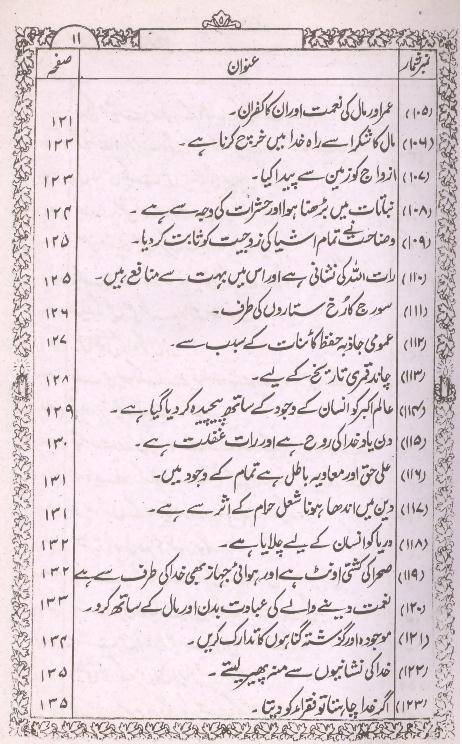 ۵
۱۱
نمبر شمار عنوان صفحہ
(۱۰۵) عمر اور مال کی نعمت اور ان کا کفران۔ ۱۲۱
(۱۰۶) مال کا شکر اسے راہ خدا میں خرچ کرنا ہے۔ ۱۲۲
(۱۰۷) ازواج کو زمین سے پیدا کیا۔ ۱۲۳
(۱۰۸) نباتات میں بڑھنا ہوا اور حشرات کی وجہ سے ہے۔ ۱۲۴
(۱۰۹) وضاحت نے تمام اشیا کی زوجیت کو ثابت کر دیا۔ ۱۲۵
(۱۱۰) رات اللہ کی نشانی ہے اور اس میں بہت سے منافع ہیں۔ ۱۲۵
(۱۱۱) سورج کا رخ ستاروں کی طرف۔ ۱۲۶
(۱۱۲) عمومی جاذبہ حفظ کائنات کے سبب سے۔ ۱۲۷
(۱۱۳) چاند قمری تاریخ کے لیے۔ ۱۲۸
(۱۱۴) عالم اکبر کو انسان کے وجود کے ساتھ پیچیدہ کر دیا گیا ہے۔ ۱۲۹
(۱۱۵) دن یاد خدا کی روح ہے اور رات غفلت ہے۔ ۱۳۰
(۱۱۶) علی حق اور معاویہ باطل ہے تمام کے وجود میں۔ ۱۳۱
(۱۱۷) دین میں اندھا ہونا شغل حرام کے اثر سے ہے۔ ۱۳۱
(۱۱۸) دریا کو انسان کے لیے چلایا ہے۔ ۱۳۲
(۱۱۹) صحرا کی کشتی اونٹ ہے اور ہوائی جہاز بھی خدا کی طرف سے ہے ۱۳۲
(۱۲۰) نعمت دینے والے کی عبادت بدن اور مال کے ساتھ کرو۔ ۱۳۳
(۱۲۱) موجودہ اور گذشتہ گناہوں کا تدارک کریں۔ ۱۳۴
(۱۲۲) خدا کی نشانیوں سے منہ پھیر لیتے۔ ۱۳۵
(۱۲۳) اگر خدا چاہتا تو فقراء کو دیتا۔ ۱۳۵